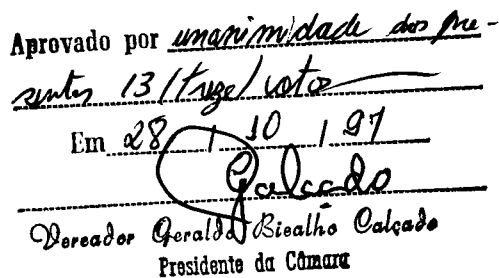 Aprovado por unanimidade dos pre-
sentes 13 (treze) votos
Em 28 / 10 / 97
Galçado
Vereador Geraldo Bicalho Calçado
Presidente da Câmara